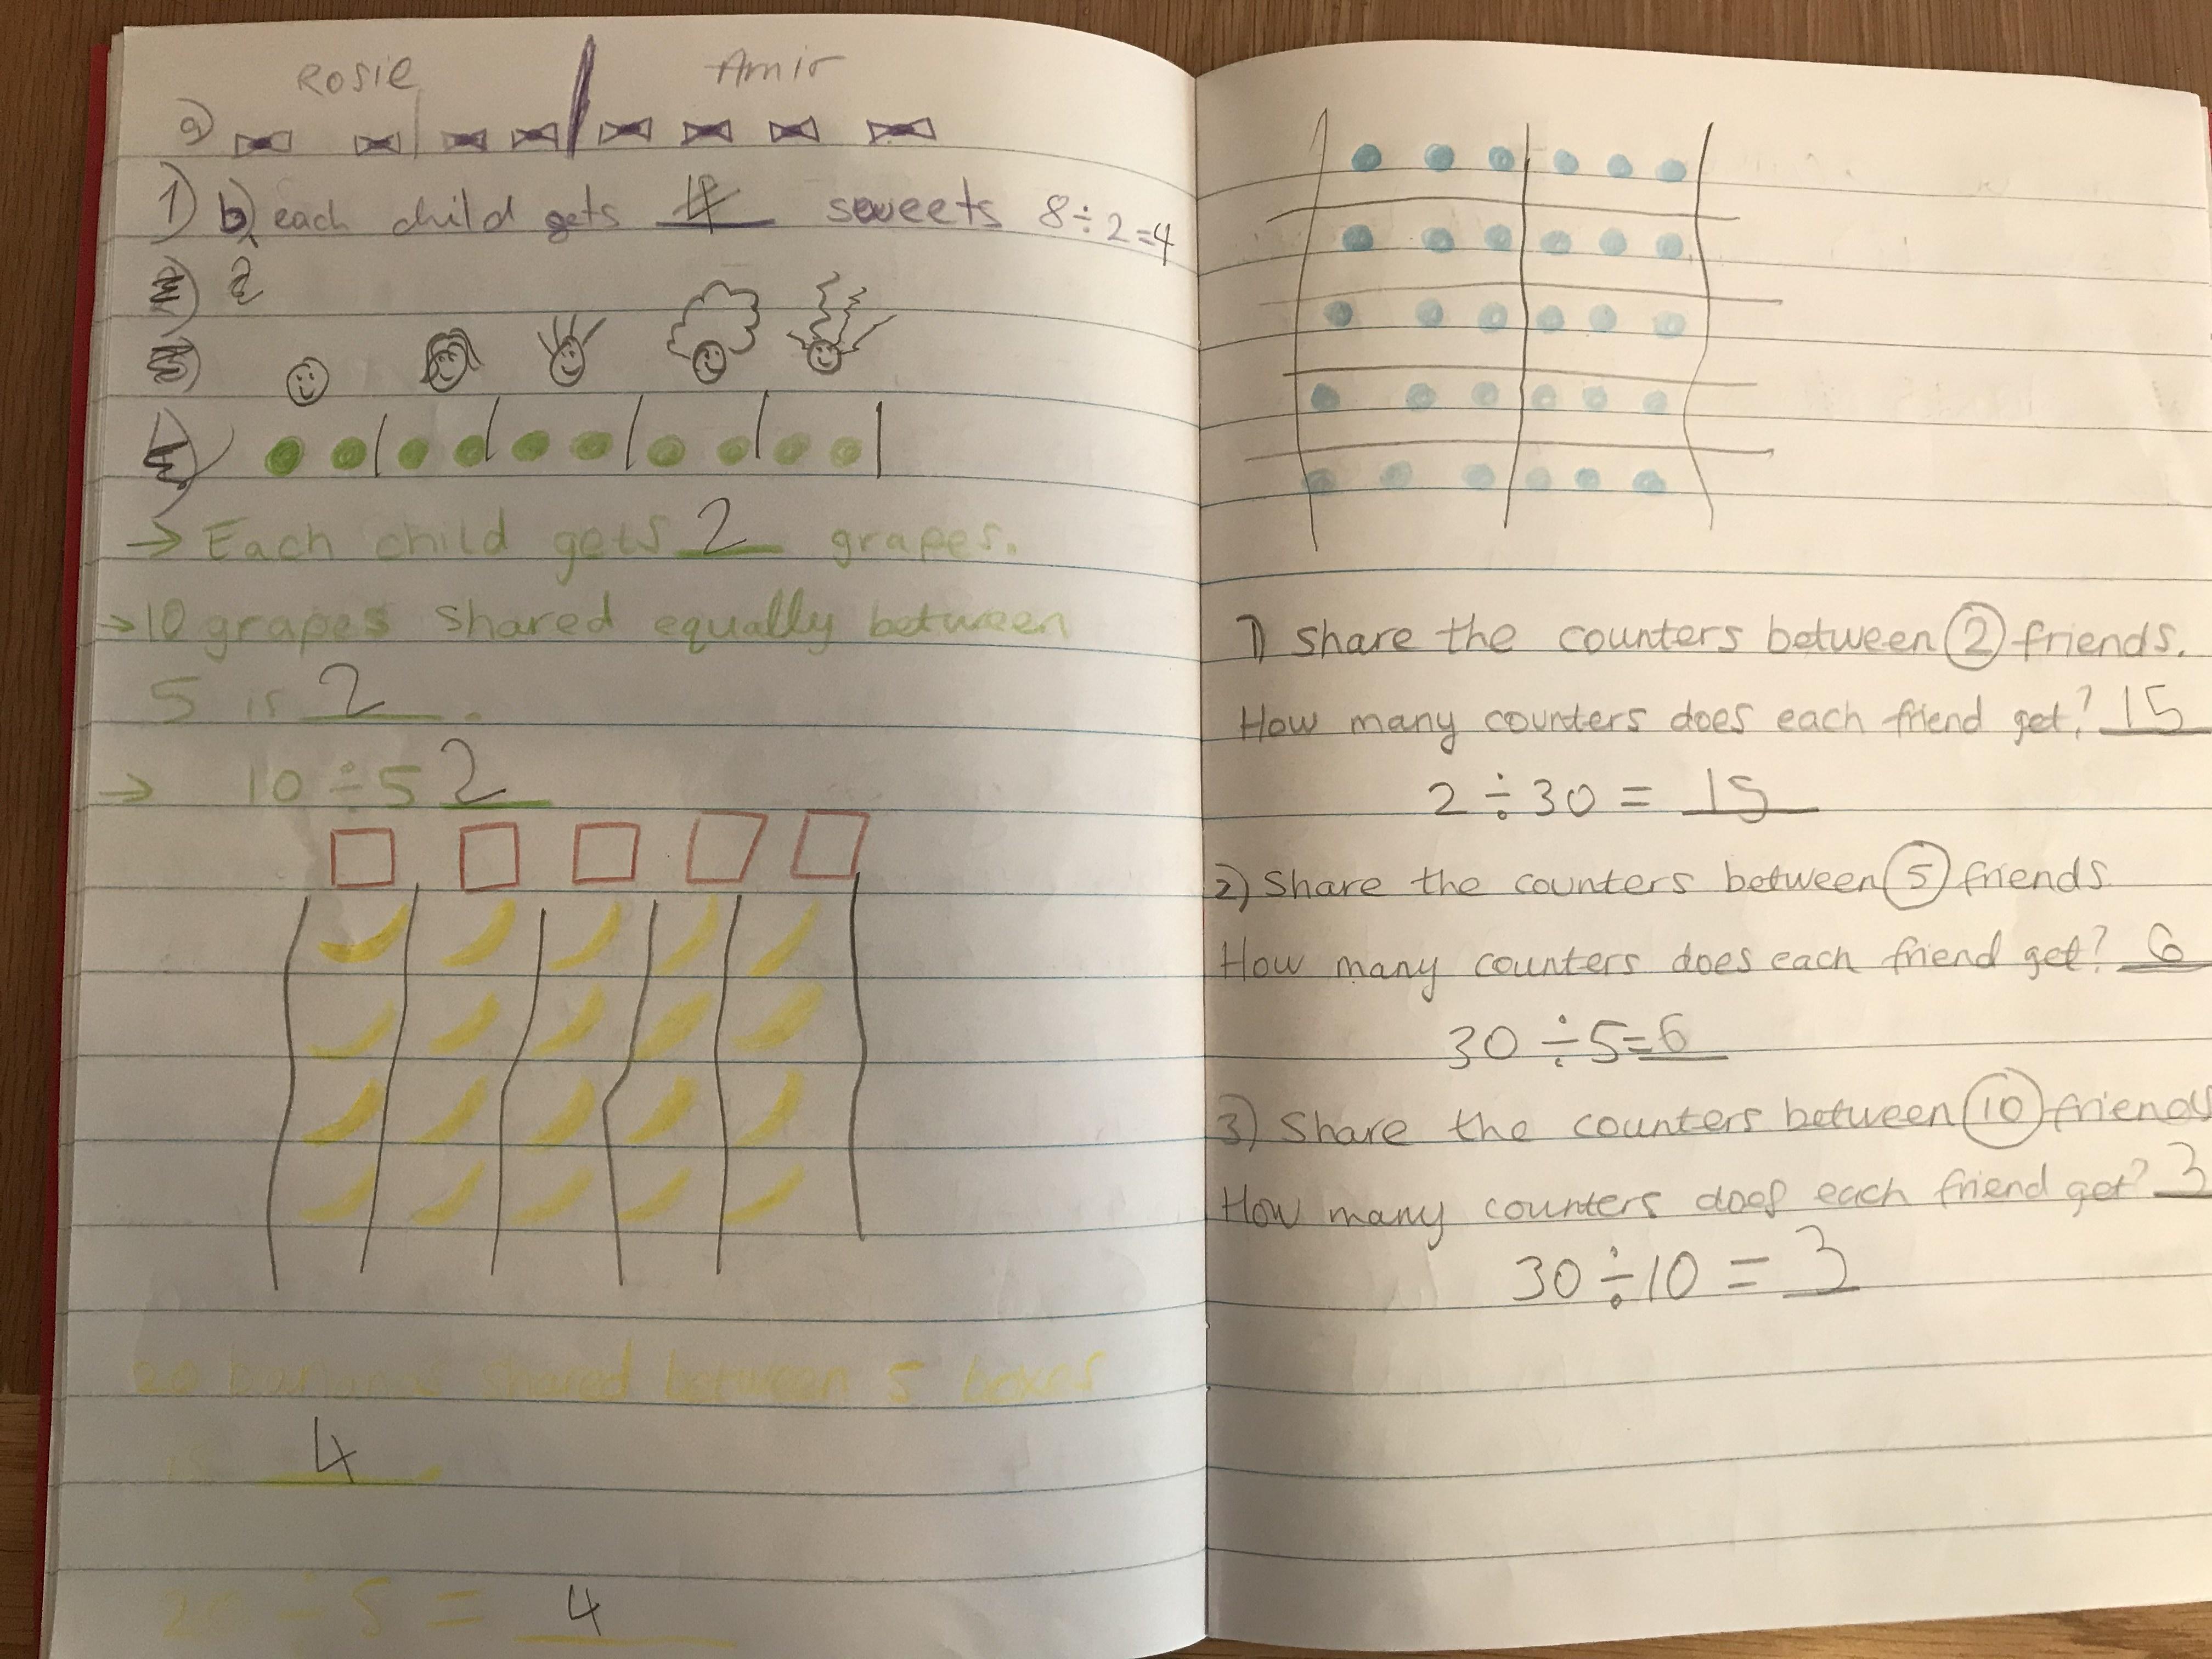 Rosie Amir
a)
1) b) each child gets 4 sweets 8÷2=4
2
→ Each child gets 2 grapes.
→ 10 grapes shared equally between
5 is 2.
→ 10 ÷ 5 2
20 bananas shared between 5 boxes
is 4.
20 ÷ 5 = 4
1) Share the counters between 2 friends.
How many counters does each friend get? 15
2 ÷ 30 = 15
2) Share the counters between 5 friends
How many counters does each friend get? 6
30 ÷ 5=6
3) Share the counters between 10 friends
How many counters does each friend get? 3
30 ÷ 10 = 3